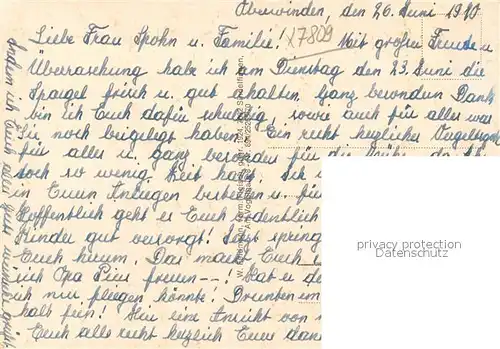 Oberwinden, den 26. Juni 1970
Liebe Frau Spohn u. Familie! Mit großer Freude u.
X7809
Überraschung habe ich am Dienstag den 23. Juni die
Spargel frisch u. gut erhalten. Ganz besondern Dank
bin ich Euch dafür schuldig, sowie auch für alles was
Sie noch beigelegt haben. Ein recht herzliches Vergeltsgott
für alles u. ganz besonders für die
doch so wenig Zeit habt. Ich
in Euren Anliegen u. für
Hoffentlich geht es Euch ordentlich
Kinder gut versorgt! Jetzt spring
Euch herum. Das macht Euch
sich Opa Pius freuen --! Hat er de
ich nur pflegen könnte! Drunten im
halt fein! Hier eine Ansicht von
Euch alle recht herzlich Eure dan
Indem ich Euch alles
privacy protection
Datenschutz